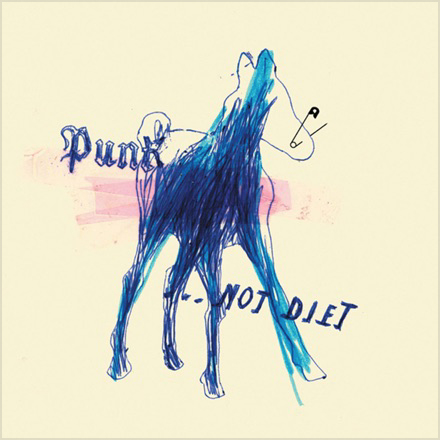 Punk
... NOT DIET